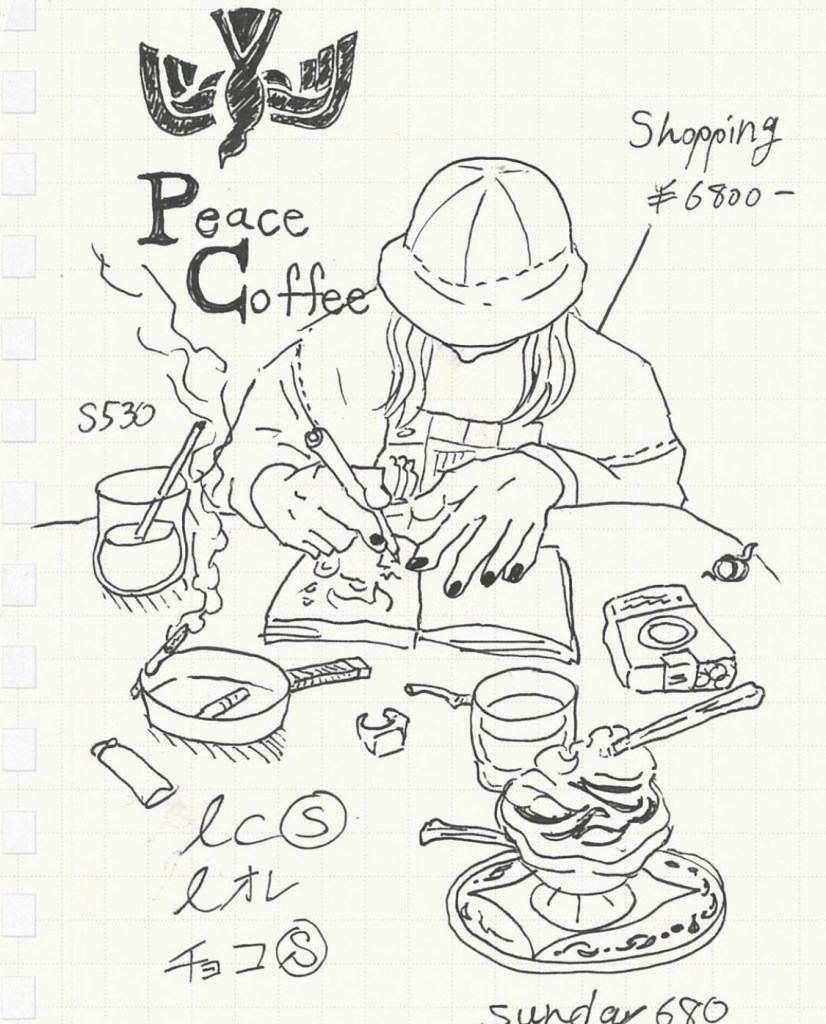 Peace
Coffee
Shopping
¥6800-
S530
lCⓈ
lオレ
チョコⓈ
sundar 680